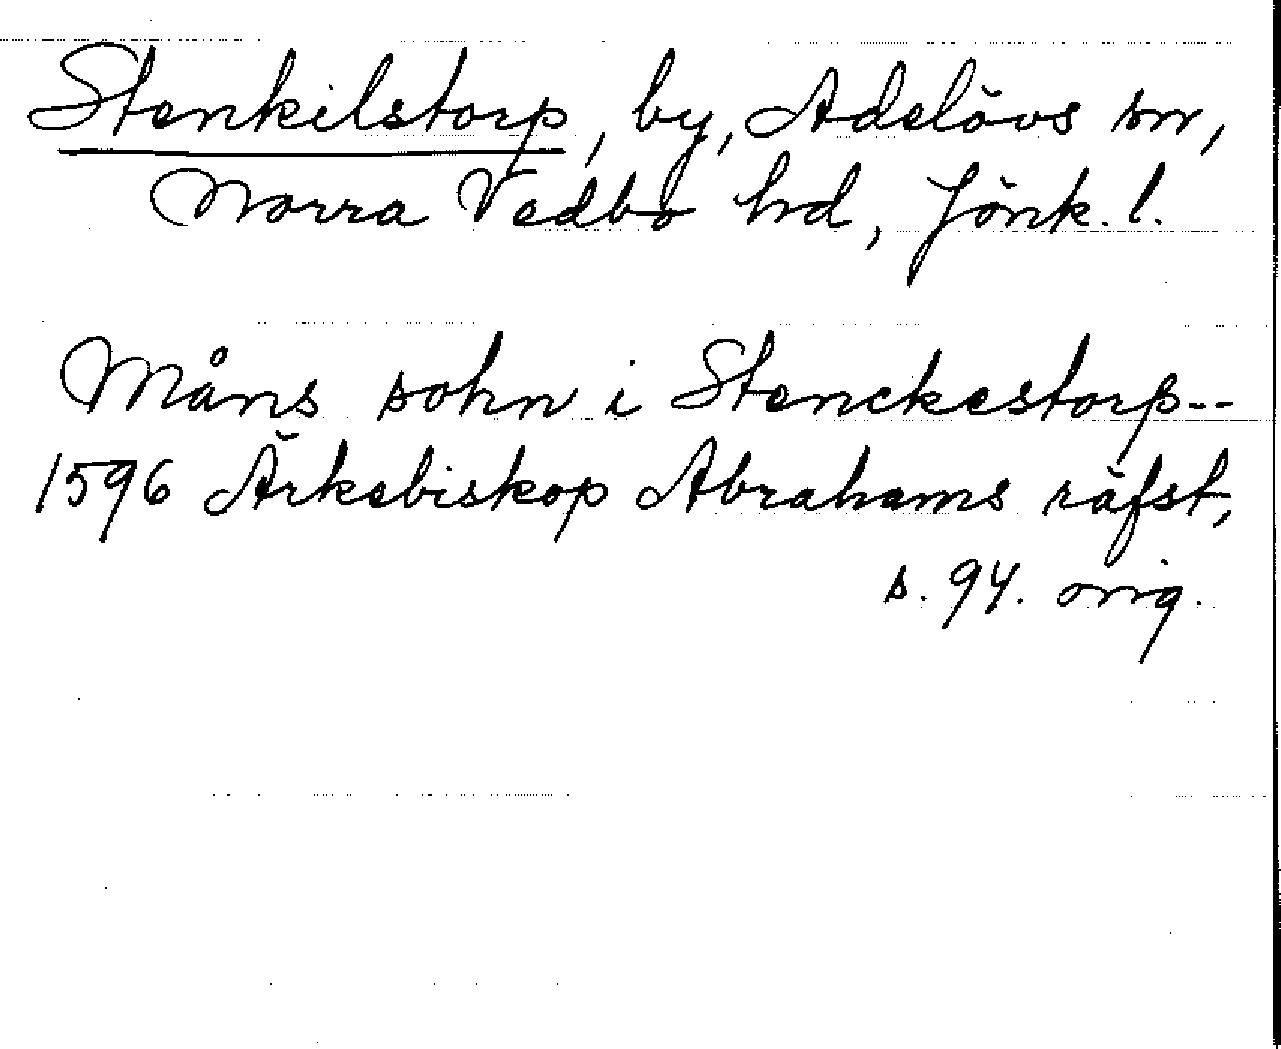 Stenkilstorp, by, Adelövs sn,
Norra Vedbo hd, Jönk. l.
Måns sohn i Stenckestorp--
1596 Ärkebiskop Abrahams räfst,
s. 94. orig.